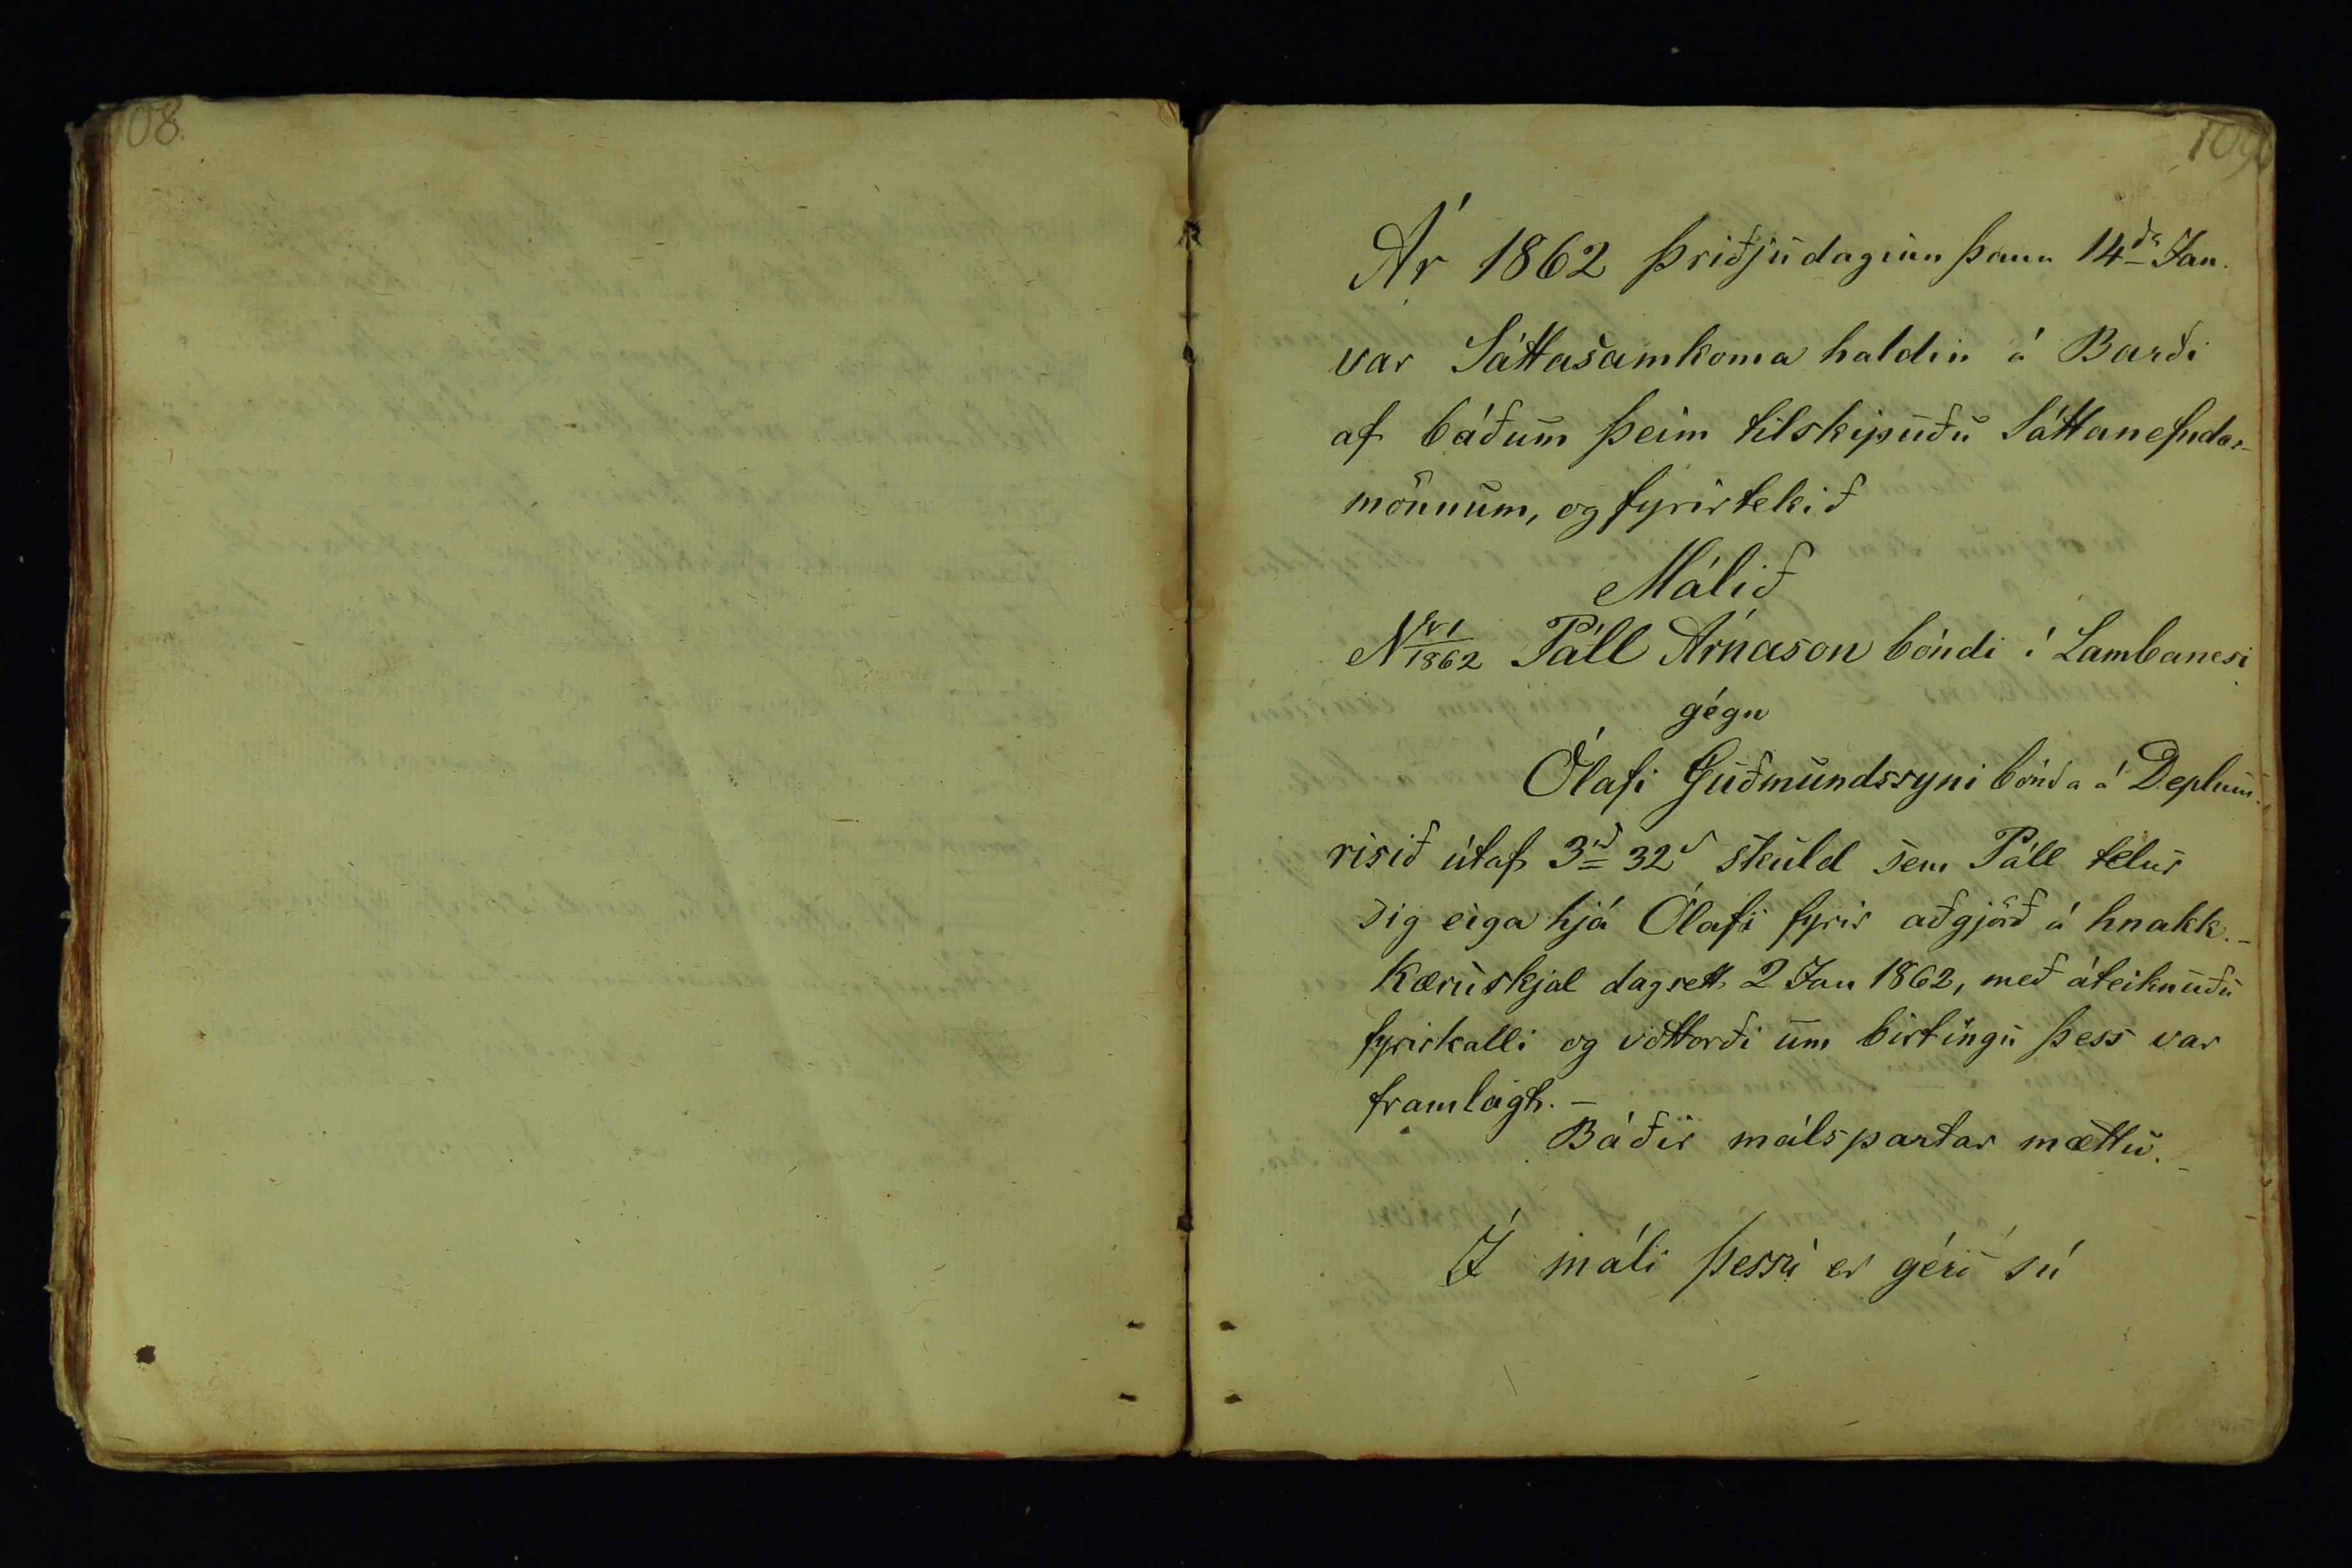 108.
109
Ár 1862 þriðjudaginn þann 14da Jan.
var Sáttasamkoma haldin á Barði
af báðum þeim tilskipuðu Sáttanefndar-
mönnum, og fyrirtekið
Málið
Nr 1/1862 Páll Árnason bóndi í Lambanesi
gégn
Ólafi Guðmundssyni bónda á Deplum.
risið útaf 3rd 32s skuld sem Páll telur
sig eiga hjá Ólafi fyrir aðgjörð á hnakk.-
Kæruskjal dagsett 2 Jan 1862, með áteiknuðu
fyrirkalli og vottorði um birtíngu þess var
framlagt. -
Báðir málspartar mættu.-
Í máli þessu er gérð sú